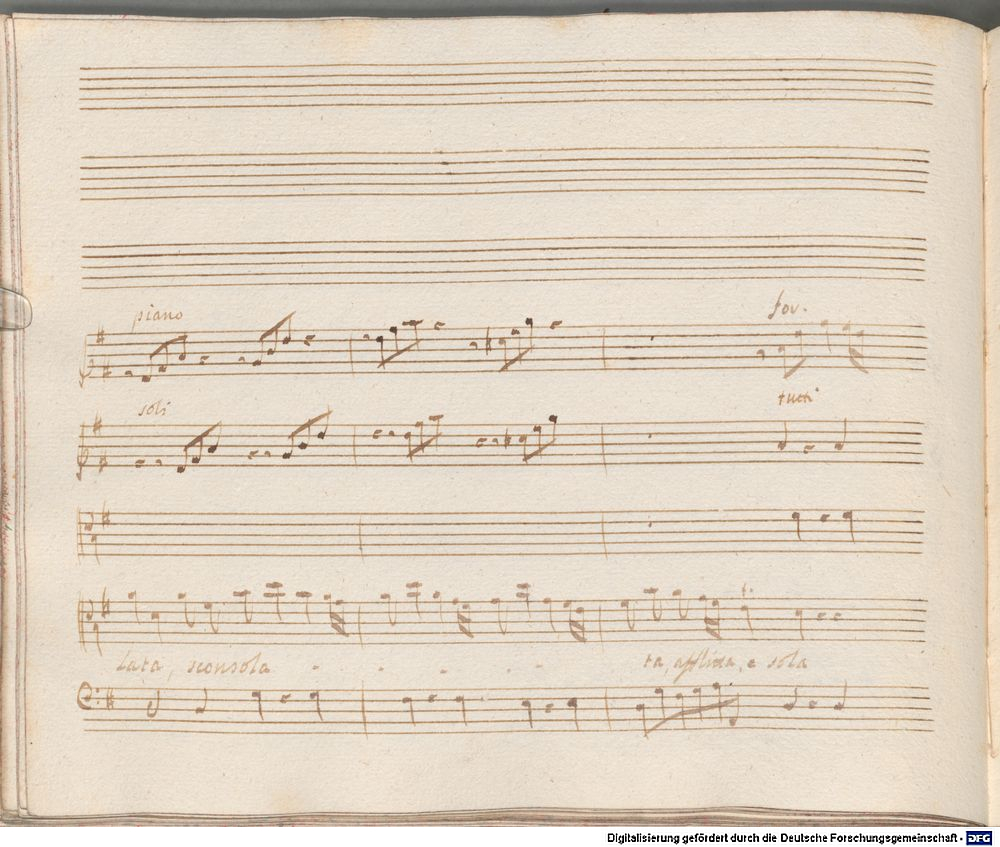 piano for.
soli tutti
lata, sconsola - - - - - ta, afflitta, e sola
Digitalisierung gefördert durch die Deutsche Forschungsgemeinschaft - DFG